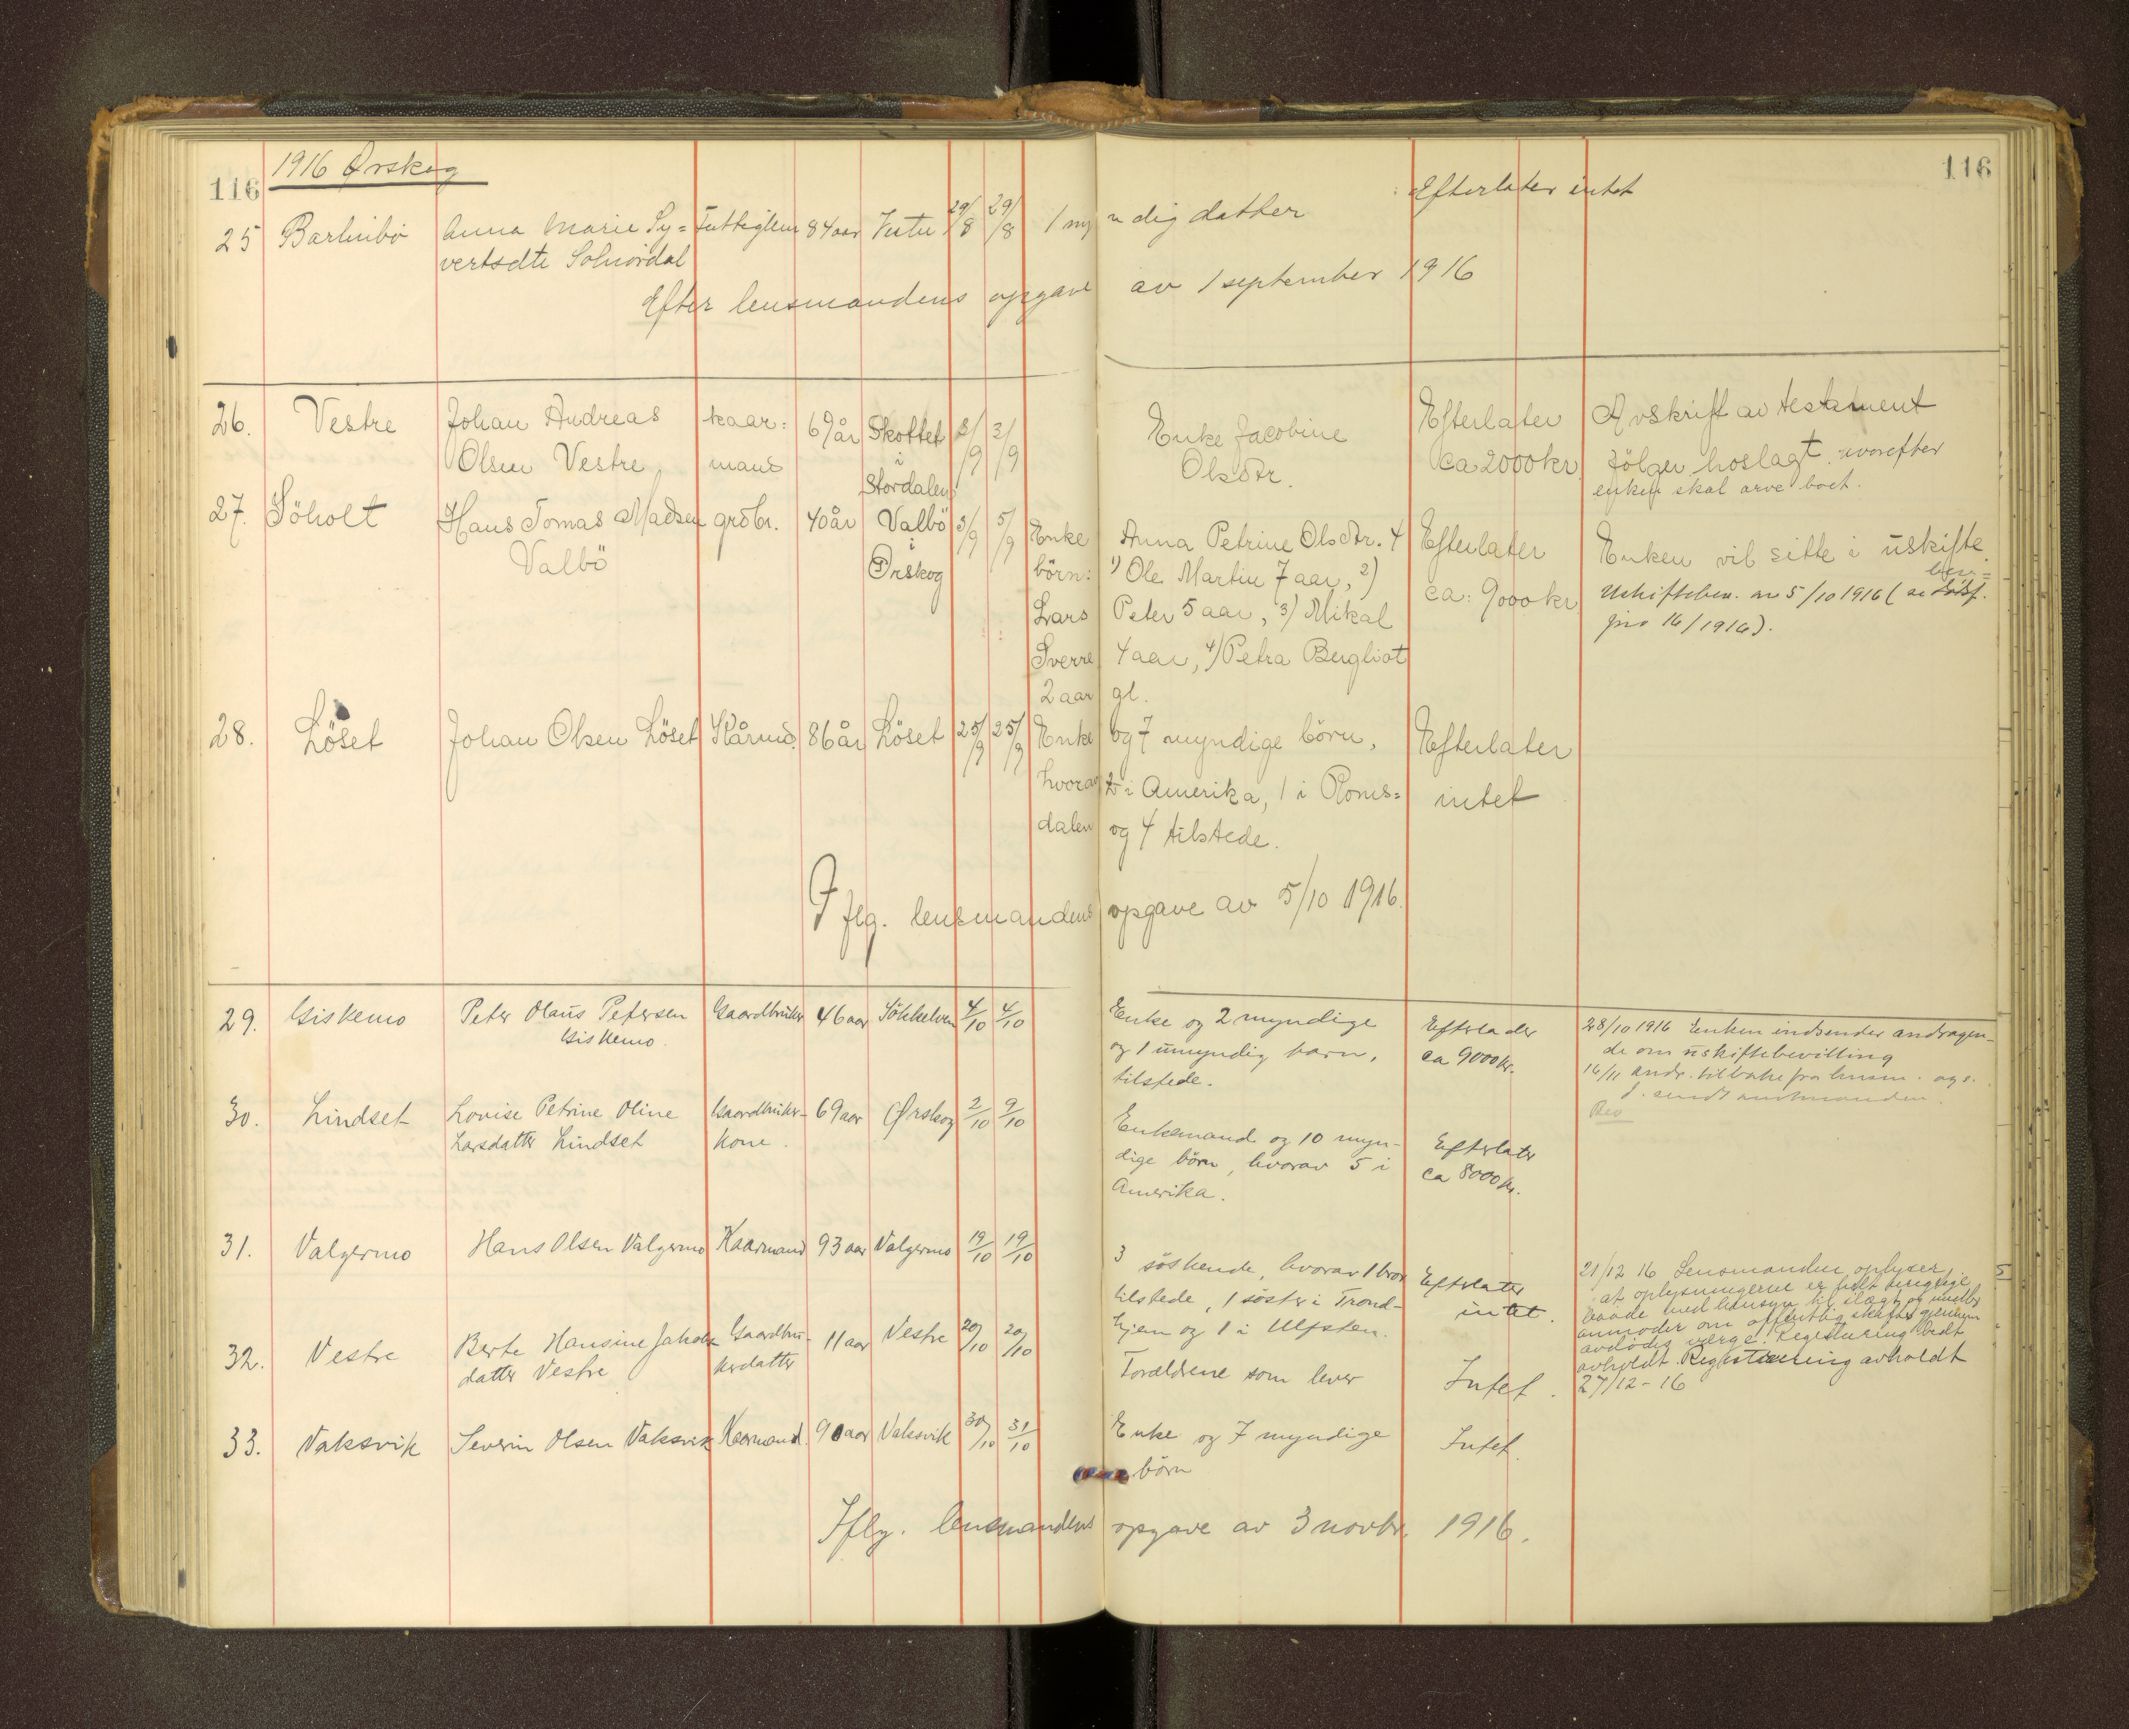 116 1916 Ørskog 116
25 Barhuibö Anna Marie Sy= Fattiglem 84 aar 29/8 29/8 1 myndig datter Efterlater intet
vertsdtr Solnördal
Efter lensmandens opgave av 1 september 1916
26. Vestre Johan Andreas kaar= 69 år Skottet 3/9 3/9 Enke Jacobine Efterlater Avskrift av testament
Olsen Vestre mand i Olsdtr. ca 2000 kr. fölger hoslagt, hvorefter
Stordalen enken skal arve boet.
27. Söholt Hans Tomas Madsen grdbr. 40 år Valbö 3/9 5/9 Enke Anna Petrine Olsdtr. 4 Efterlater Enken vil sitte i uskifte
Valbö i Ørskog börn: 1) Ole Martin 7 aar, 2) ca: 9000 kr Uskiftebev. av 5/10 1916 (se
Lars Peter 5 aar, 3) Mikal 16/1916).
Sverre 4 aar, 4) Petra Bergliot
2 aar gl.
28. Löset Johan Olsen Löset Kårmd. 86 år Löset 25/9 25/9 Enke og 7 myndige börn, Efterlater
hvorav 2 i Amerika, 1 i Roms= intet
dalen og 4 tilstede.
Iflg. lensmandens opgave av 5/10 1916.
29. Giskemo Peter Olaus Petersen Gaardbruker 46 aar Sökkelven 4/10 4/10 Enke og 2 myndige Efterlader 28/10 1916 Enken indsender andragen-
Giskemo. og 1 umyndig barn, ca 9000 kr. de om uskiftebevilling
tilstede. 16/11 andr. tilbake fra lensm. ags.
d. sendt amtmanden.
Bev
30. Lindset Lovise Petrine Oline Gaardbruker- 69 aar Ørskog 2/10 9/10 Enkemand og 10 myn- Efterlater
Larsdatter Lindset kone. dige börn, hvorav 5 i ca 8000 kr.
Amerika.
31. Valgermo Hans Olsen Valgermo Kaarmand 93 aar Valgermo 19/10 19/10 3 söskende, hvorav 1 bror Efterlater 21/12 16 Lensmanden oplyser,
tilstede, 1 söster i Trond- intet. at oplysningerne er helt uriktige
hjem og 1 i Ulfsten. baade med hensyn til slægt og midler
anmoder om offentlig skifte gjennem
avdödes værge. Registrering bedt
avholdt. Registrering avholdt
27/12-16
32. Vestre Berte Hansine Jakobs- Gaardbru- 11 aar Vestre 20/10 20/10 Forældrene som lever Intet.
datter Vestre kerdatter
33. Vaksvik Severin Olsen Vaksvik Kaarmand. 90 aar Vaksvik 30/10 31/10 Enke og 7 myndige Intet.
börn
Iflg. lensmandens opgave av 3 novbr. 1916.